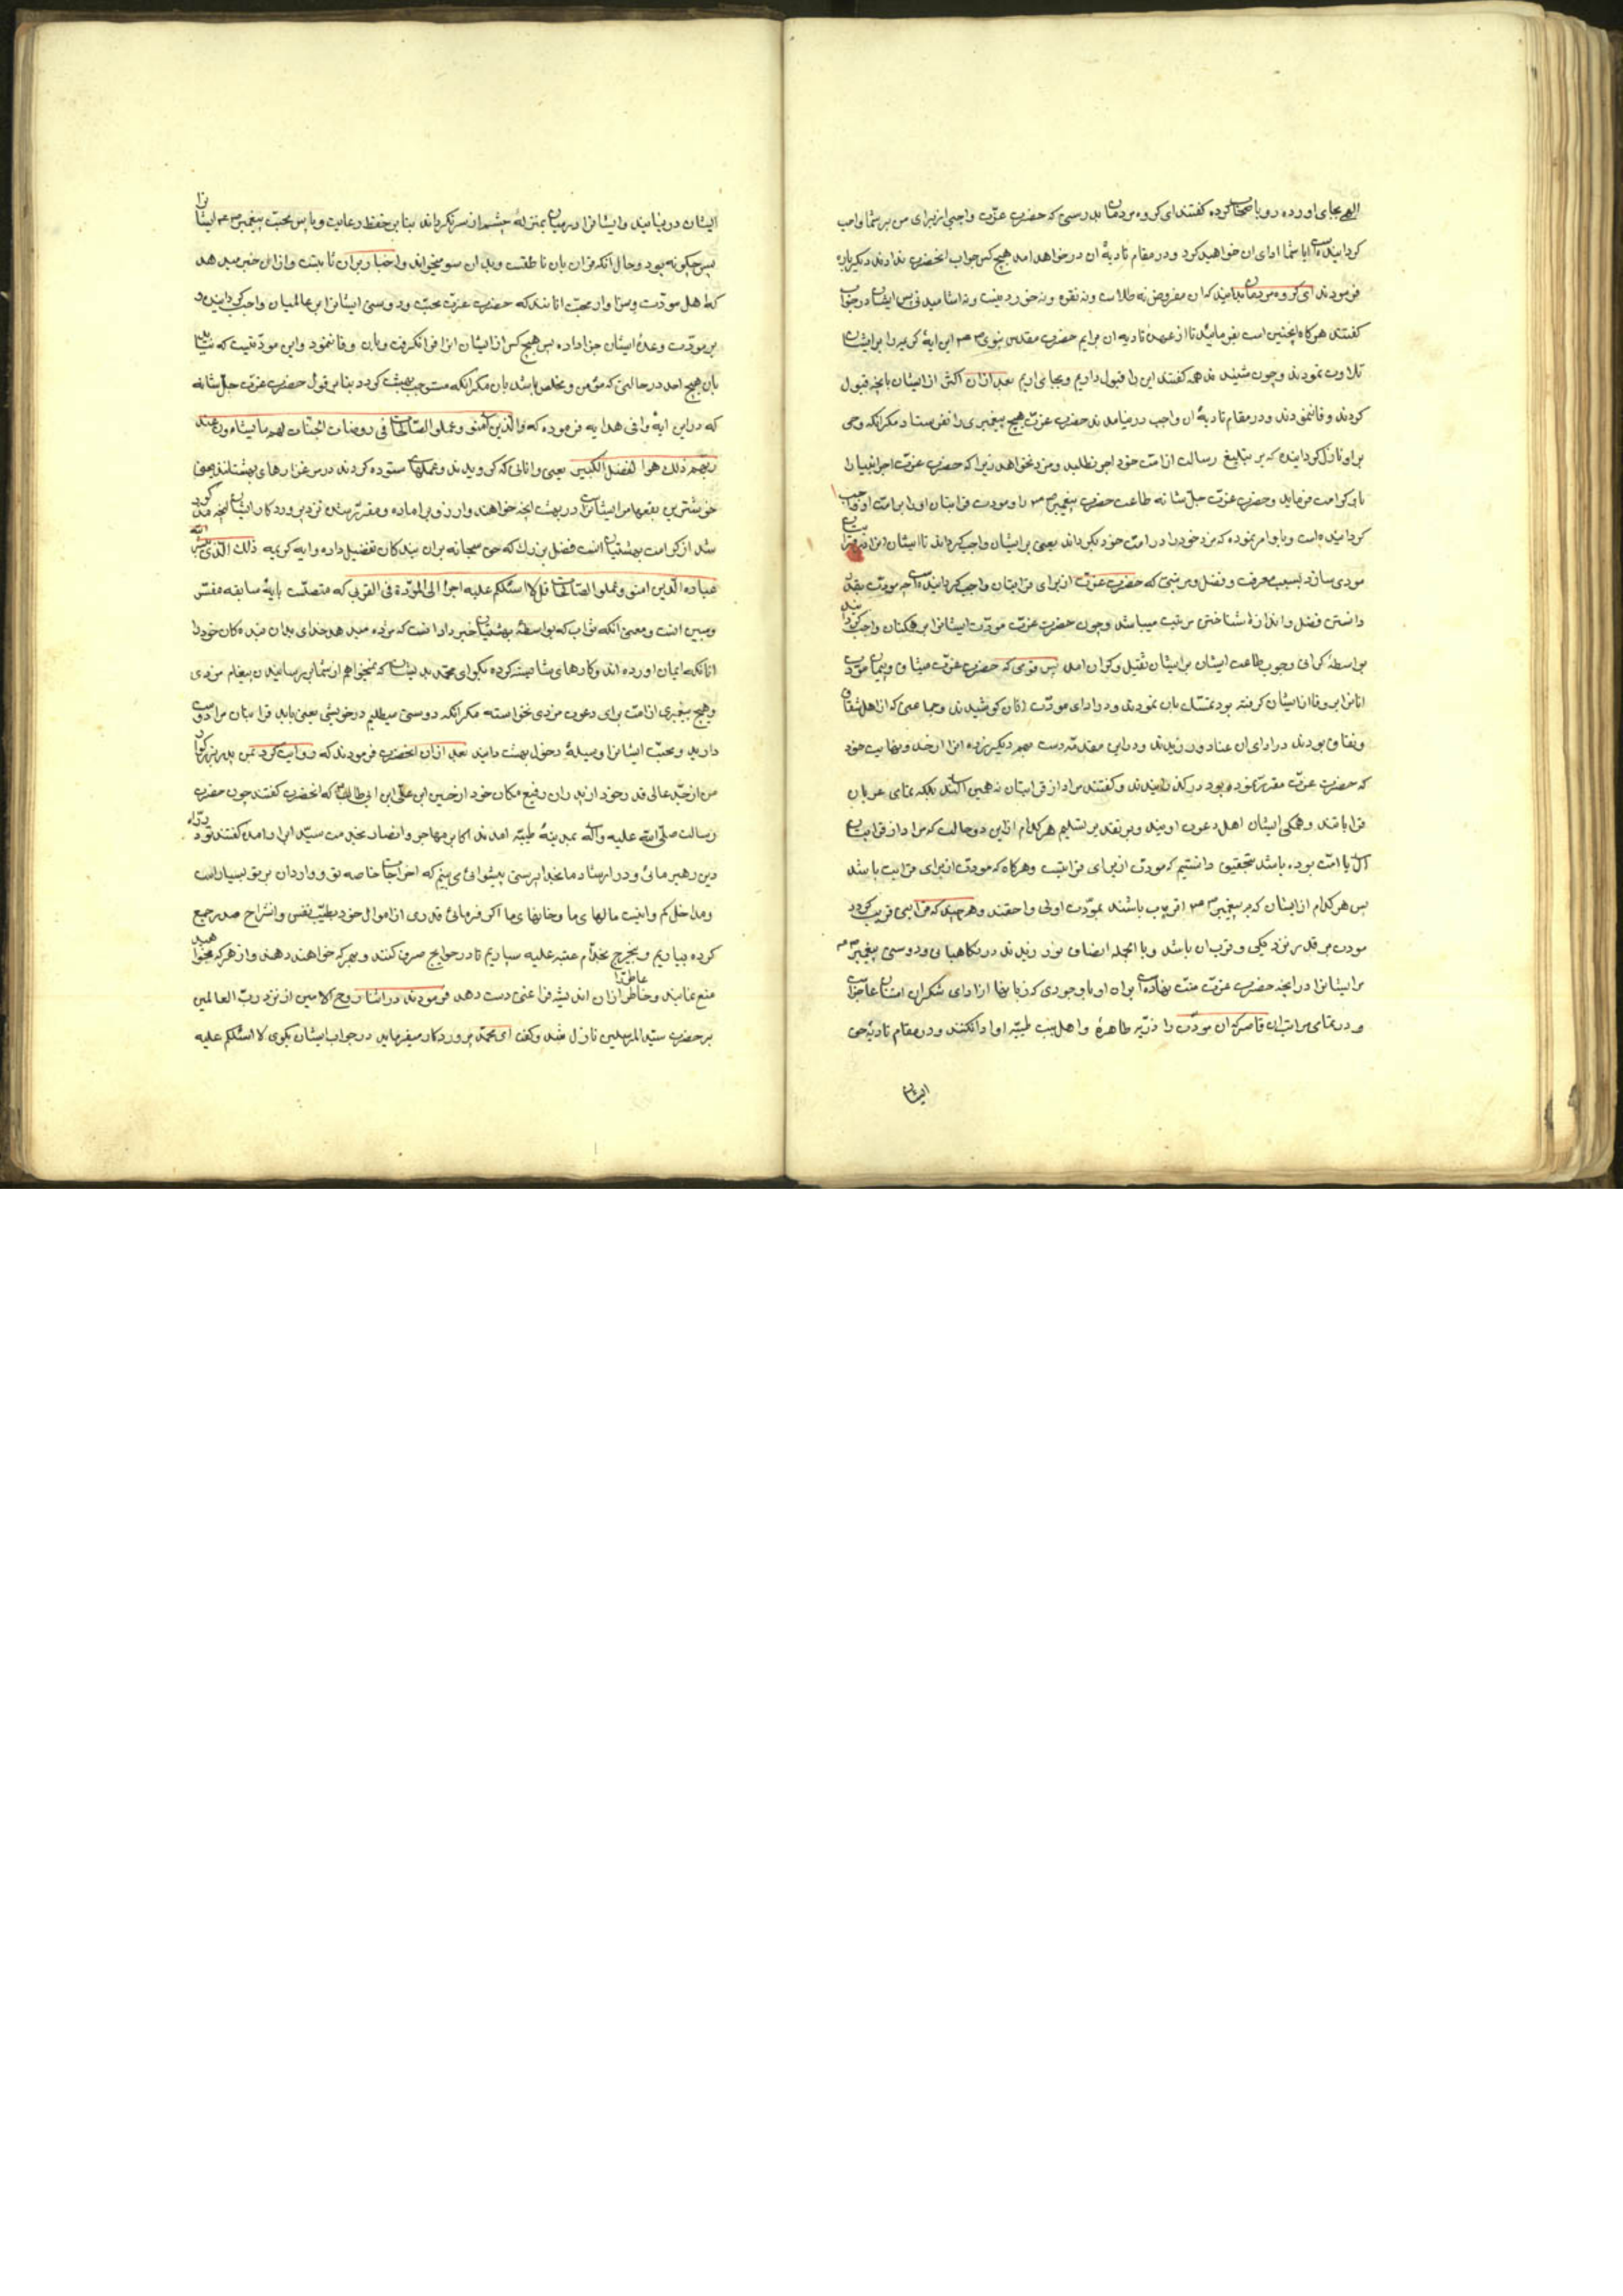 الهی بجای اورده رو باصحاب کرده گفتند ای کروه مردمان بدرستی که حضرت عزّت واجبی از برای من بر شما واجب
کردانیده ایا شما ادای ان خواهید کرد و در مقام تادیهٔ ان در خواهد امد هیچ کس جواب انحضرت ندادند دیکر باره
فرمودند ای کروه مردمان بدانید که ان مفروض نه طلاست و نه نقره و نه خوردنیست و نه اشامیدنی پس ایشان در جواب
کفتند هرکاه اینچنین است بفرمائید تا از عهدهٔ تادیه ان برایم حضرت مقدس نبوی ص این ایهٔ کریمه را بر ایشان
تلاوت نمودند و چون شنیدند همه کفتند این را قبول داریم و بجای اریم بعد از ان اکثر از ایشان بانچه قبول
کردند وفا ننمودند و در مقام تادیهٔ ان واجب در نیامدند حضرت عزّت هیچ پیغمبری را نفرستاد مکر انکه وحی
بر او نازل کردانیده که بر تبلیغ رسالت از امت خود اجر نطلبد و مزد نخواهد زیرا که حضرت عزّت اجر انبیا را
باو کرامت فرماید و حضرت عزّت جلّ شانه طاعت حضرت پیغمبر ص را و مودت قرابتان او را بر امت او واجب
کردانیده است و باو امر نموده که مزد خود را در امت خود بکرداند یعنی بر ایشان واجب کرداند تا ایشان انرا در قرابتان
مودی سازند بسبب معرفت و فضل و مرتبتی که حضرت عزّت از برای قرابتان واجب کردانیده است چه مودت بقدر
دانستن فضل و اندازهٔ شناختن مرتبت میباشد و چون حضرت عزّت مودّت ایشانرا بر همکنان واجب کردانید
بواسطهٔ کرانی وجوب طاعت ایشان بر ایشان ثقیل و کران امد پس قومی که حضرت عزّت میثاق و پیمان مودّت
انانرا بر وفا از ایشان کرفته بود تمسّک بان نمودند و در ادای مودّت انان کوشیدند و جماعتی که از اهل شقاق
و نفاق بودند در ادای ان عناد ورزیدند و در این مقدّمه دست بهم دیکر زده انرا از حد و نهایت خود
که حضرت عزّت مقرّر نموده بود در کذرانیدند و کفتند مراد از قرابتان نه همین ال اند بلکه تمامی عربان
قرابتند و همکی ایشان اهل دعوت اویند و بر تقدیر تسلیم هر کدام از این دو حالت که مراد از قرابتان
ال یا امّت بوده باشد بتحقیق دانستیم که مودت از برای قرابتست و هرکاه که مودت از برای قرابت باشد
پس هر کدام از ایشان که به پیغمبر ص اقرب باشند بمودّت اولی و احقند و هر چند که قرابتی قریب کردد
مودت بر قدر نزدیکی و قرب ان باشد و بالجمله انصاف نورزیدند در نکاهبانی و دوستی پیغمبر ص
مر ایشانرا در انچه حضرت عزّت منّت نهاده است بر ان او باوجودی که زبانها از ادای شکر ان امتنان عاجز است
و در تمامی مراتب ان قاصر که ان مودّت را ذرّیه طاهرهٔ و اهل بیت طیّبه او ادا نکنند و در مقام تادیه حق
ایشان
ایشان در نیامیند و ایشانرا در میان بمنزلهٔ چشم از سر نکردانند بنابر حفظ رعایت و پاس محبّت پیغمبر ص ایشانرا
پس چکونه بود و حال انکه قران بان ناطقست و بدان سو میخواند و اخبار بر ان ثابتست و از این خبر میدهد
که اهل مودّت و سزاوار محبّت انانند که حضرت عزّت محبّت و دوستی ایشانرا بر عالمیان واجب کردانیده و
بر مودّت وعدهٔ ایشان جزا داده پس هیچ کس از ایشان انرا فرا نکرفت و بان وفا ننمود و این مودّتیست که نیاید
بان هیچ احد در حالتی که مؤمن و مخلص باشد بان مکر انکه مستوجب بهشت کردد بنابر قول حضرت عزّت جلّ شانه
که در این ایهٔ وافی هدایه فرموده که والّذین آمنوا وعملوا الصّالحات فی روضات الجنّات لهم ما یشاؤن عند
ربّهم ذلک هو الفضل الکبیر یعنی و انانی که کرویدند و عملهای ستوده کردند در مرغزارهای بهشتند یعنی
خوشترین بقعها مر ایشانراست در بهشت انچه خواهند و ارزو برند اماده و مقرّر شده نزد پروردکار ایشان انچه مذکور
شد از کرامت بهشتیان انست فضل بزرک که حق سبحانه بر ان بندکان تفضیل داده و ایه کریمه ذلک الّذی یبشّر الله
عباده الّذین امنوا وعملوا الصّالحات قل لا اسئلکم علیه اجرا الّا المودّة فی القربی که متصلست بایهٔ سابقه مفسّر
و مبین انست و معنی انکه ثواب که بواسطهٔ بهشتیان خبر داد انست که مژده میدهد خدای بدان بنده کان خود را
انانکه ایمان اورده اند و کارهای شایسته کرده بکو ای محمّد بدیشان که نمیخواهم از شما بر رسانیدن پیغام مزدی
و هیچ پیغبری از امت برای دعوت مزدی نخواسته مکر انکه دوستی میطلبم در خویشی یعنی باید قرابتان مرا دوست
دارید و محبّت ایشانرا وسیلهٔ دخول بهشت دانید بعد از ان انحضرت فرمودند که روایت کرد بمن پدر بزرکوار
من از جدّ عالی قدر خود از پدران رفیع مکان خود از حسین ابن علی ابن ابی طالب که انحضرت کفتند چون حضرت
رسالت صلّی الله علیه وآله بمدینهٔ طیّبه امدند اکابر مهاجر و انصار بخدمت سیّد ابرار امده کفتند تو در راه
دین رهبر مائی و در ارشاد ما بخدا پرستی پیشوائی می بینم که اخراجات خاصه تو و واردان بر تو بسیار است
و مداخل کم و اینست مالهای ما و جانهای ما اکر فرمائی قدری از اموال خود بطیب نفس و انشراح صدر جمع
کرده بیاریم و بخرج بخدّام عتبه علیه سپاریم تا در حوایج صرف کنند و بهر که خواهند دهند و از هر که میخواهند
منع نمایند و خاطر عاطر را از ان اندیشه فراغتی دست دهد فرمودند در اثنا روح الامین از نزد ربّ العالمین
بر حضرت سیّد المرسلین نازل شد و کفت ای محمّد پروردکار میفرماید در جواب ایشان بکوی لا اسئلکم علیه